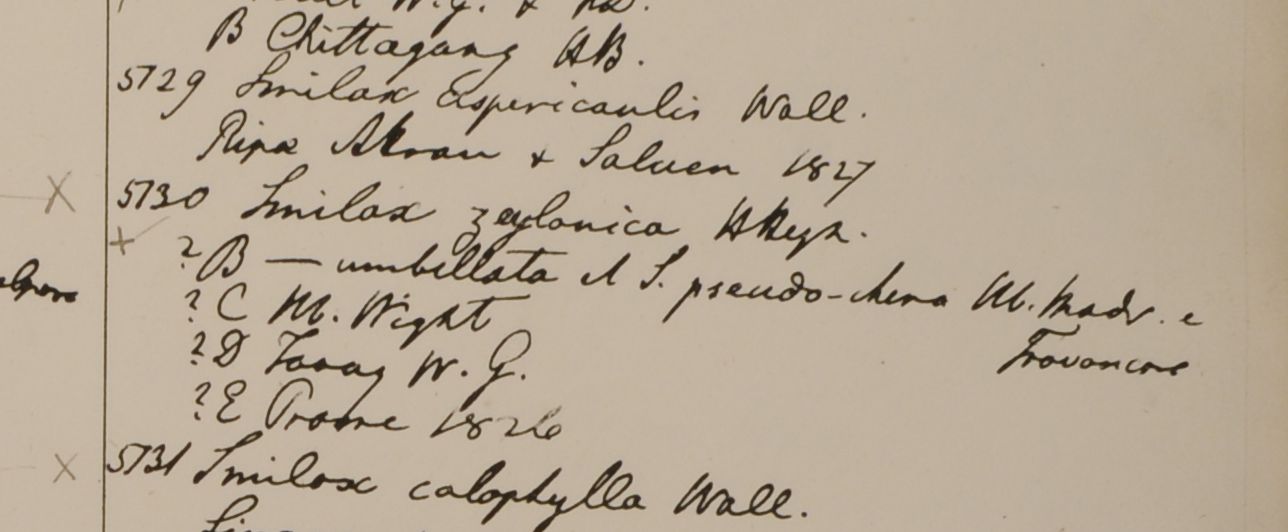 W.G. &
B Chittagong HB.
5729 Smilax aspericaulis Wall.
Ripa Atran & Saluen 1827
5730 Smilax zeylanica HRegn.
? B — umbellata & S. pseudo-china M. Madr. e
Travancore
? C M. Wight
? D Tavoy W. G.
? E Prome 1826
5731 Smilax calophylla Wall.